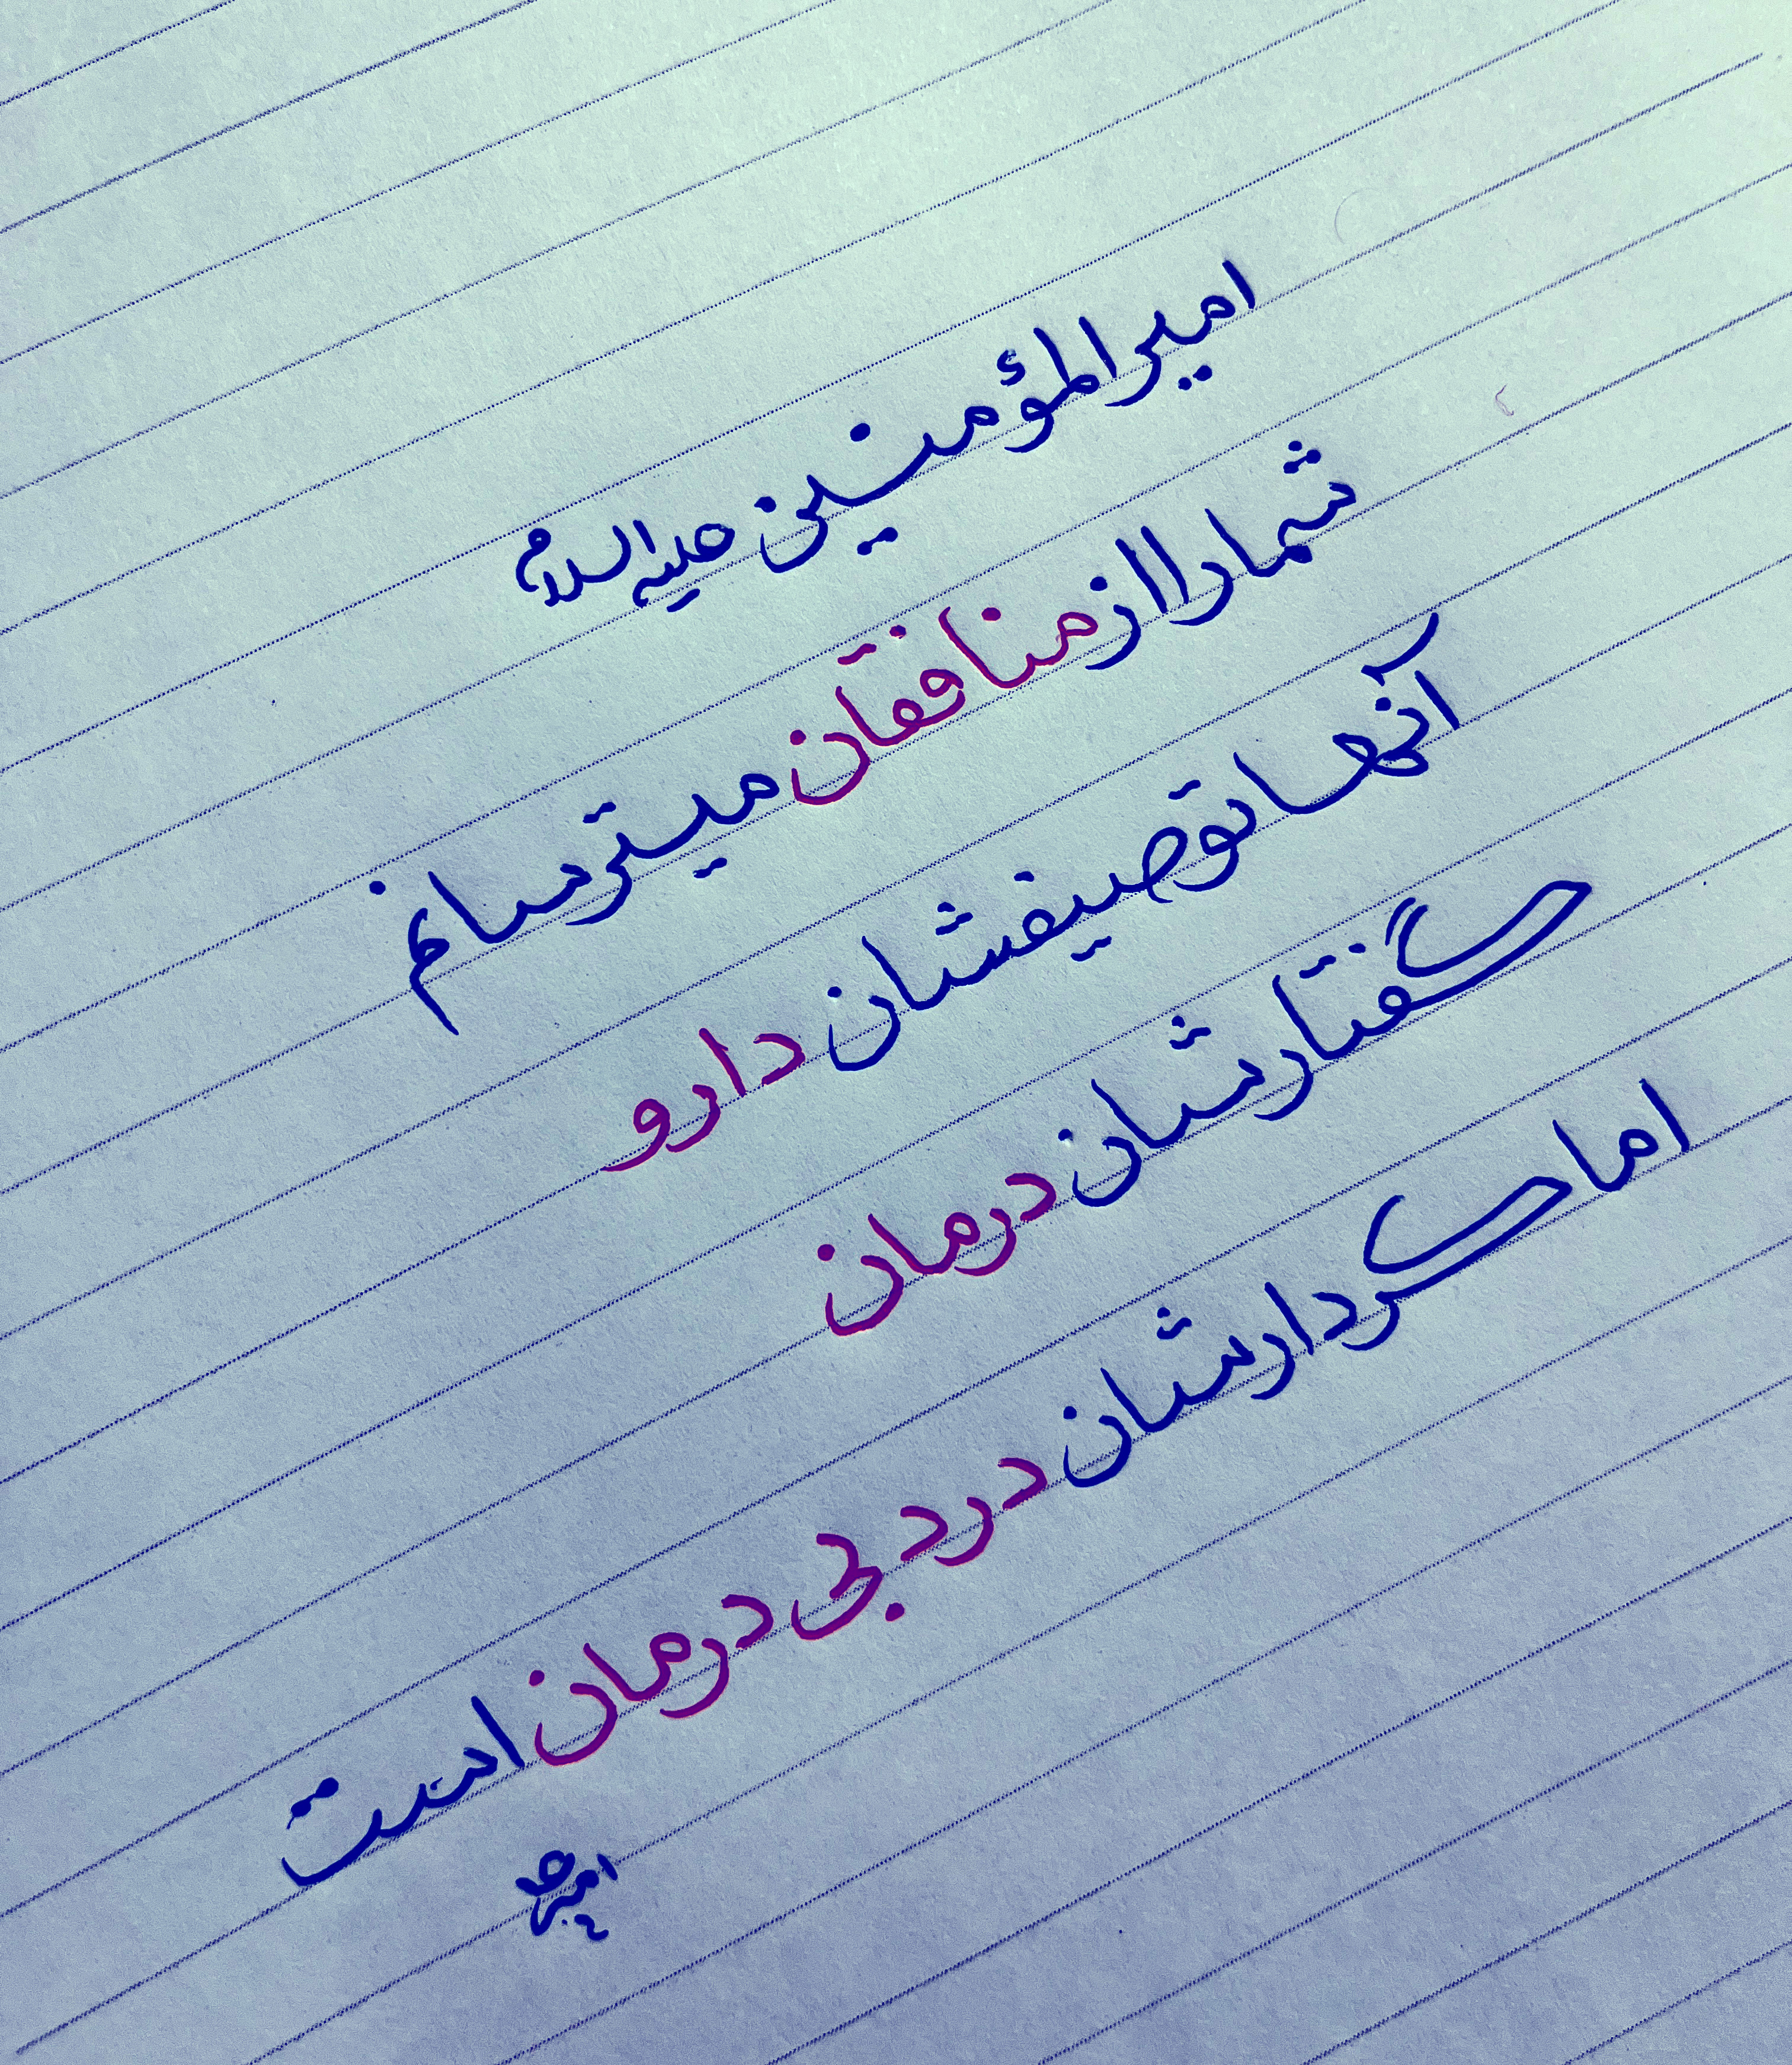 امیرالمؤمنین علیه السلام
شما را از منافقان میترسانم
آنها توصیفشان دارو
گفتارشان درمان
اما کردارشان درد بی درمان است